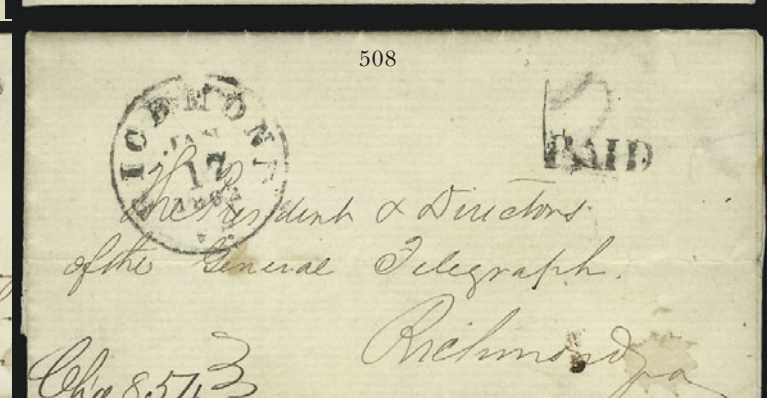 508
RICHMOND
JAN
17
1862
PAID
The President & Directors
of the General Telegraph.
Richmond Va